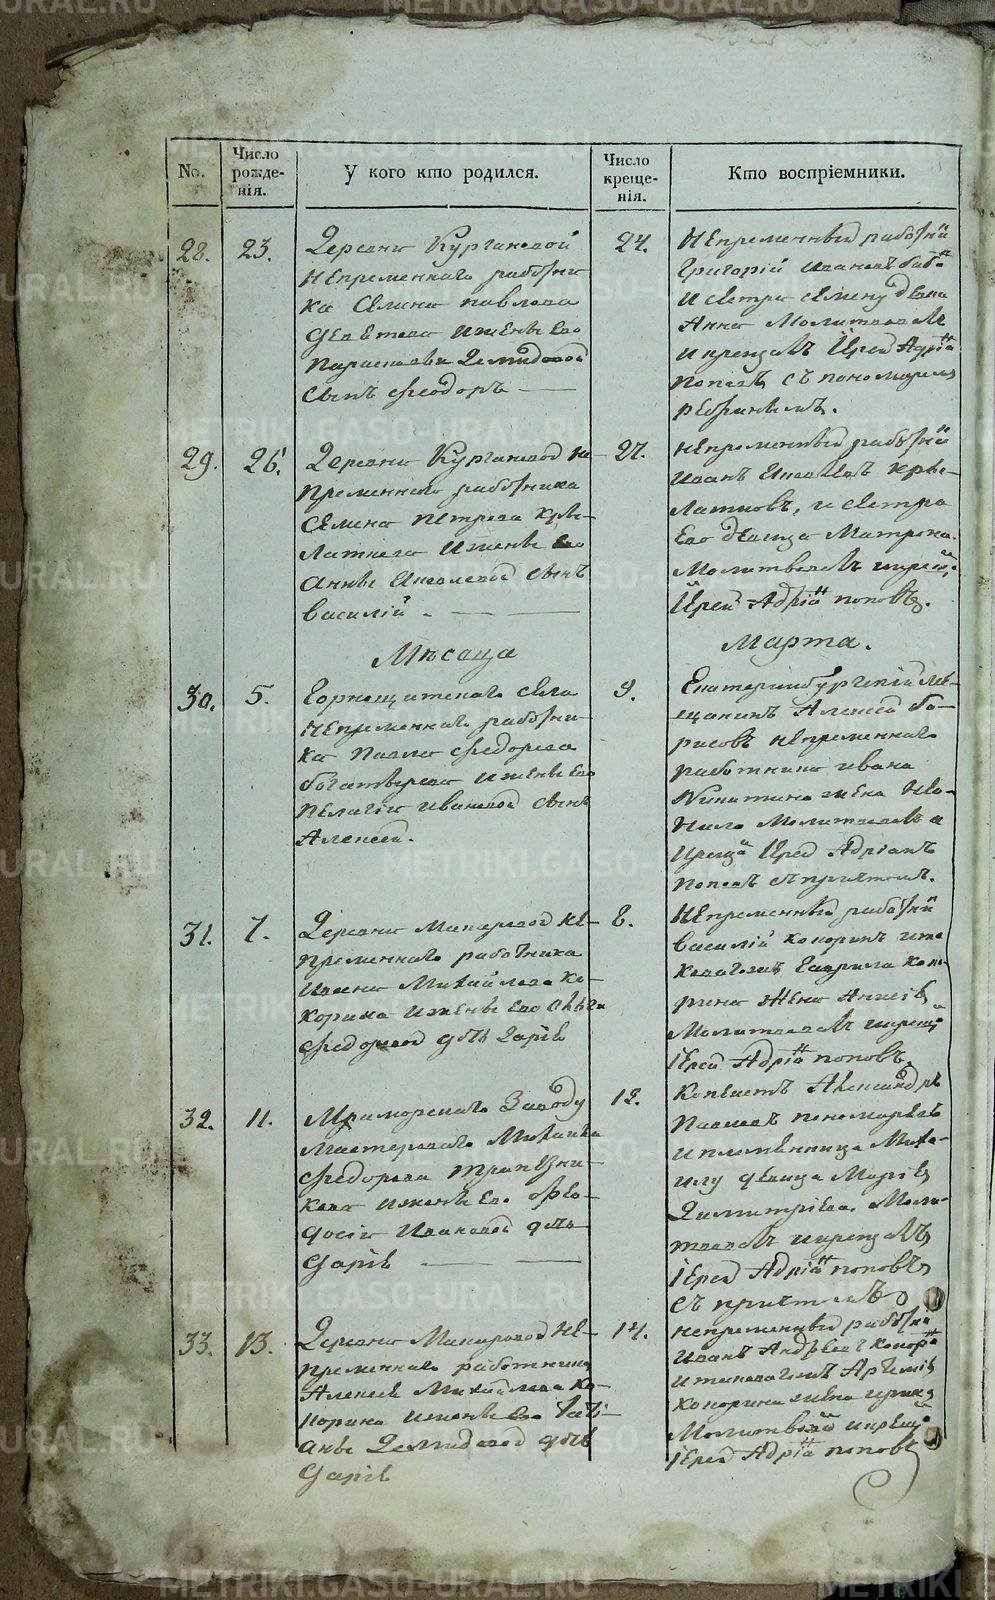 No.
Число рожде-нія.
У кого кто родился.
Число креще-нія.
Кто воспріемники.
28.
23.
Деревни Кургановой
непременнаго работни
ка Семена Павлова
и жены его
Параскевы Демидовой
сынъ Феодоръ
24.
Непременный работни
Григорій Ивановъ
и сестра
Анна Молитвовалъ
и крещалъ Iерей Адріа
Поповъ съ пономаремъ
29.
26.
Деревни Кургановой не-
пременнаго работника
Семена Петрова Кры-
латкова и жены его
Анны сынъ
Василій
27.
Непременный работни
Иванъ Кры-
латковъ, и сестра
его девица Матрона.
Молитвовалъ и крещ.
Iерей Адріа Поповъ.
Мѣсяца
Марта.
30.
5.
Горнощитскаго села
непременнаго работни
ка Павла Федорова
Богатырева и жены его
Пелагіи Ивановой сынъ
Алексей.
9.
Екатеринбургскій ме-
щанинъ Алексей Бо-
рисовъ непременнаго
работника Ивана
Никитина жена Нео-
нила Молитвовалъ и
креща Iерей Адріанъ
Поповъ съ причтомъ.
31.
7.
Деревни Макаровой не-
пременнаго работника
Ивана Михайлова Ко-
корина и жены его Ольги
Федоровой дочь Дарія
8.
Непременный работни
Василій Кокоринъ
Гаврила Коко-
рина жена
Молитвовалъ и крещ
Iерей Адріа Поповъ.
32.
11.
Мраморскаго Заводу
мастероваго Михаила
Федорова Трапезни-
кова и жены его Фео-
досіи Ивановой дочь
Дарія
12.
Копеистъ Александръ
Павловъ Пономаревъ
и племянница Миха-
илу девица Марія
Димитріева. Моли-
твовалъ и крещалъ
Iерей Адріа Поповъ
съ причтомъ
33.
13.
Деревни Макаровой не-
пременнаго работника
Алексея Михайлова Ко-
корина и жены его Тати-
аны Демидовой дочь
Дарія
14.
Непременный работни
Иванъ Андреевъ Кокори
и
Кокорина жена Ирина
Молитвовалъ и крещ
Iерей Адріа Поповъ
METRIKI.GASO-URAL.RU